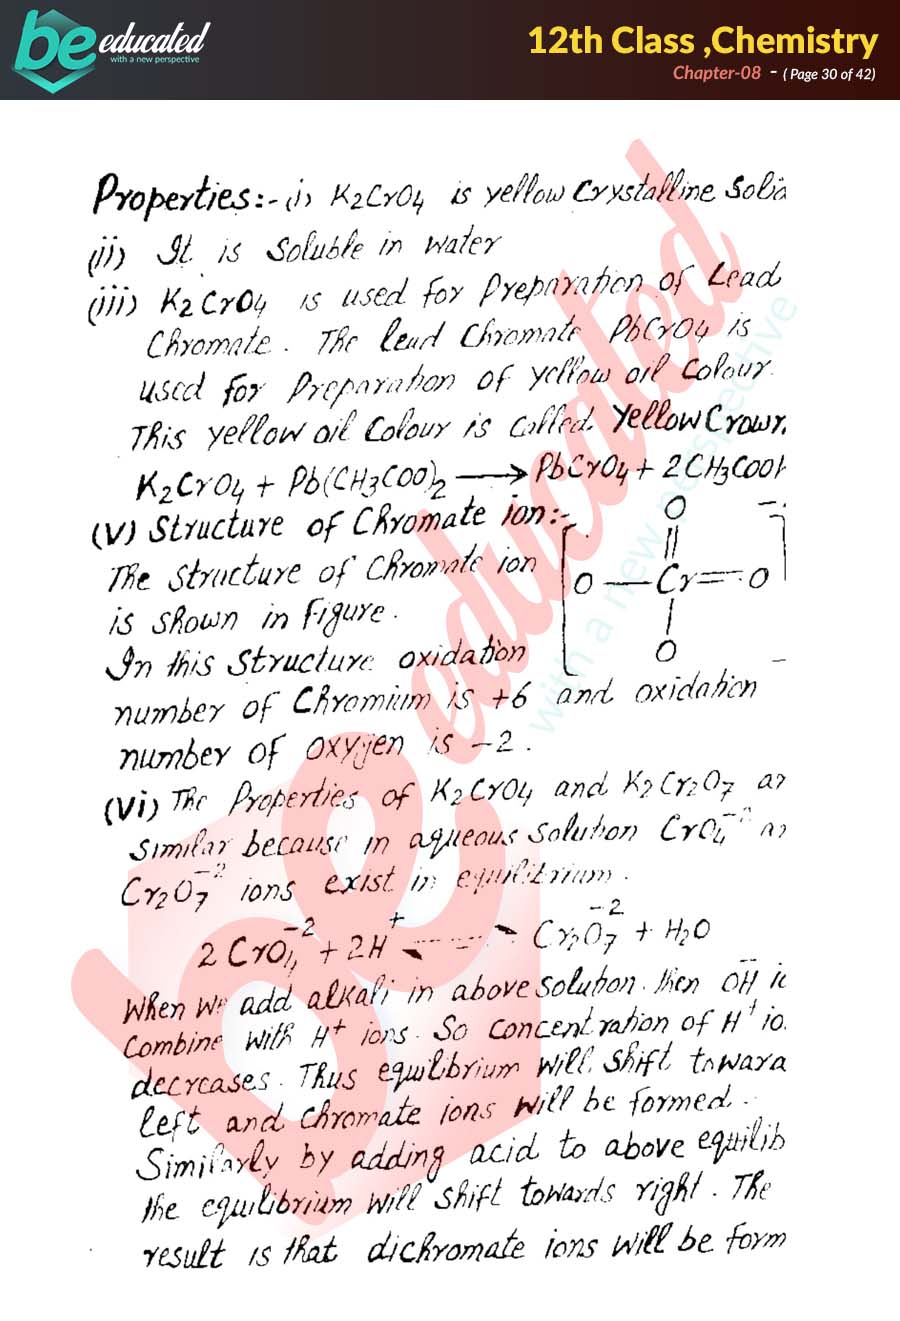 be educated
with a new perspective
12th Class ,Chemistry
Chapter-08 - ( Page 30 of 42)
Properties:- (i) K2CrO4 is yellow Crystalline Solid
(ii) It is Soluble in water
(iii) K2CrO4 is used for Preparation of Lead
Chromate. The lead Chromate PbCrO4 is
used for Preparation of yellow oil Colour.
This yellow oil Colour is Called Yellow Crown
K2CrO4 + Pb(CH3COO)2 ⟶ PbCrO4 + 2CH3COOK
(V) Structure of Chromate ion:-
The Structure of Chromate ion
is shown in Figure.
O
O — Cr = O
O
In this Structure oxidation
number of Chromium is +6 and oxidation
number of oxygen is -2.
(Vi) The Properties of K2CrO4 and K2Cr2O7 ar
Similar because in aqueous solution CrO4⁻² an
Cr2O7⁻² ions exist in equilibrium.
2CrO4⁻² + 2H⁺ ⇌ Cr2O7⁻² + H2O
When we add alkali in above solution. then OH⁻ io
Combine with H+ ions. So concentration of H+ io
decreases. Thus equilibrium will shift toward
left and chromate ions will be formed.
Similarly by adding acid to above equilib
the equilibrium will shift towards right. The
result is that dichromate ions will be form
be educated
with a new perspective